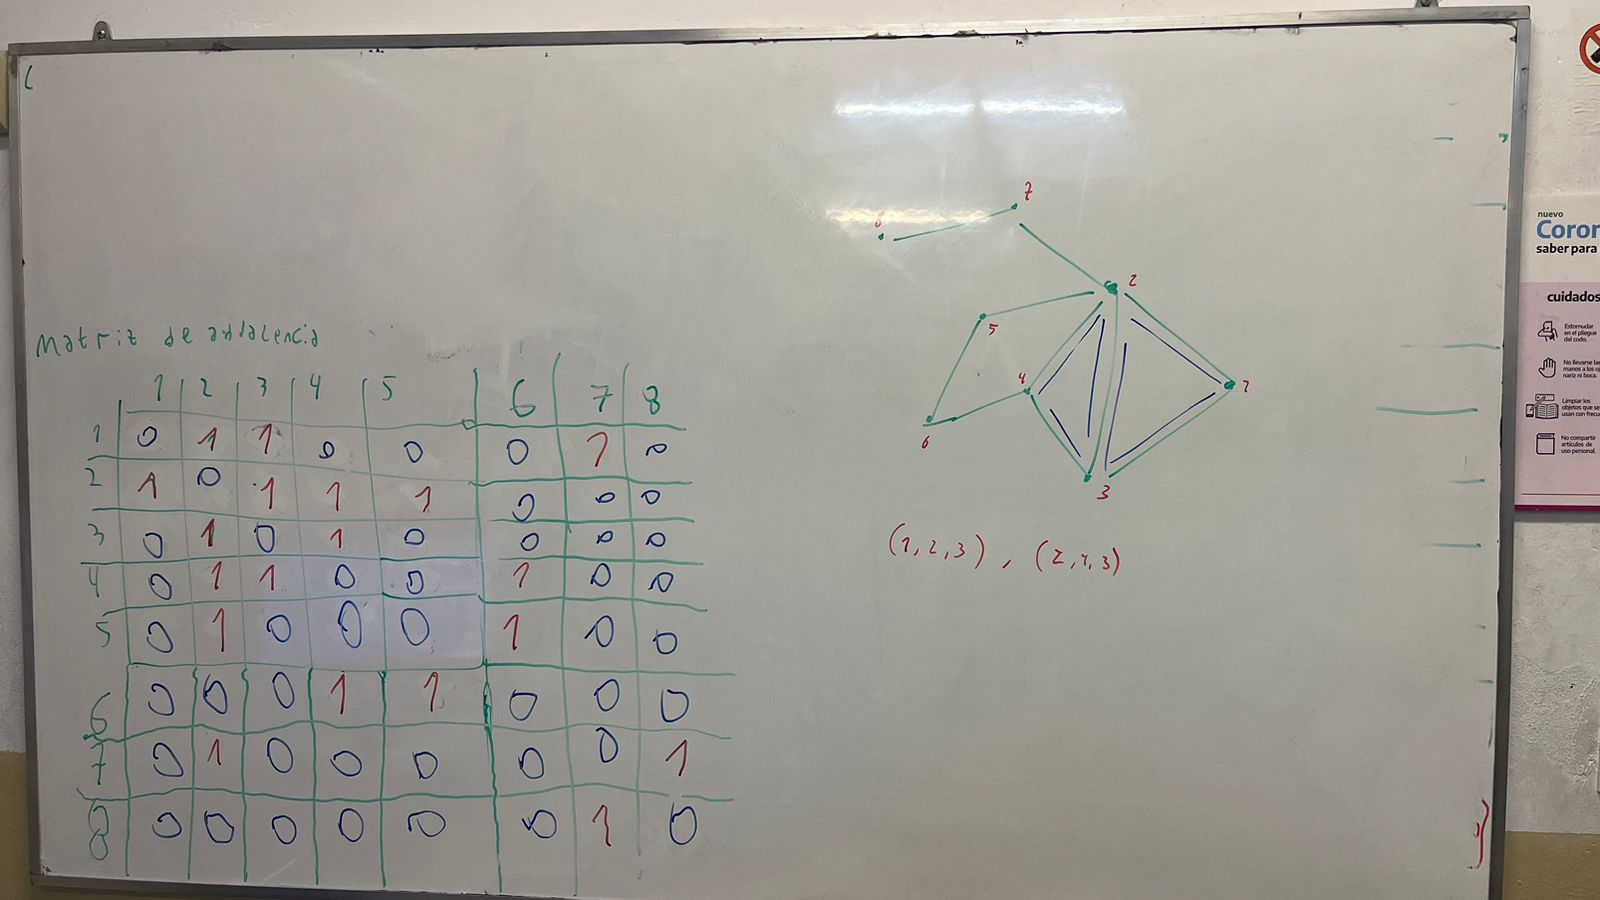 Matriz de adyacencia
1 2 3 4 5 6 7 8
1 0 1 1 0 0 0 1 0
2 1 0 1 1 1 0 0 0
3 0 1 0 1 0 0 0 0
4 0 1 1 0 0 1 0 0
5 0 1 0 0 0 1 0 0
6 0 0 0 1 1 0 0 0
7 0 1 0 0 0 0 0 1
8 0 0 0 0 0 0 1 0
7
8
2
5
4
1
6
3
(1,2,3), (2,4,3)
nuevo
Coron
saber para
cuidados
Estornudar
en el pliegue
del codo.
No llevarse las
manos a los oj
nariz ni boca.
Limpiar los
objetos que se
usan con frecu
No compartir
artículos de
uso personal.